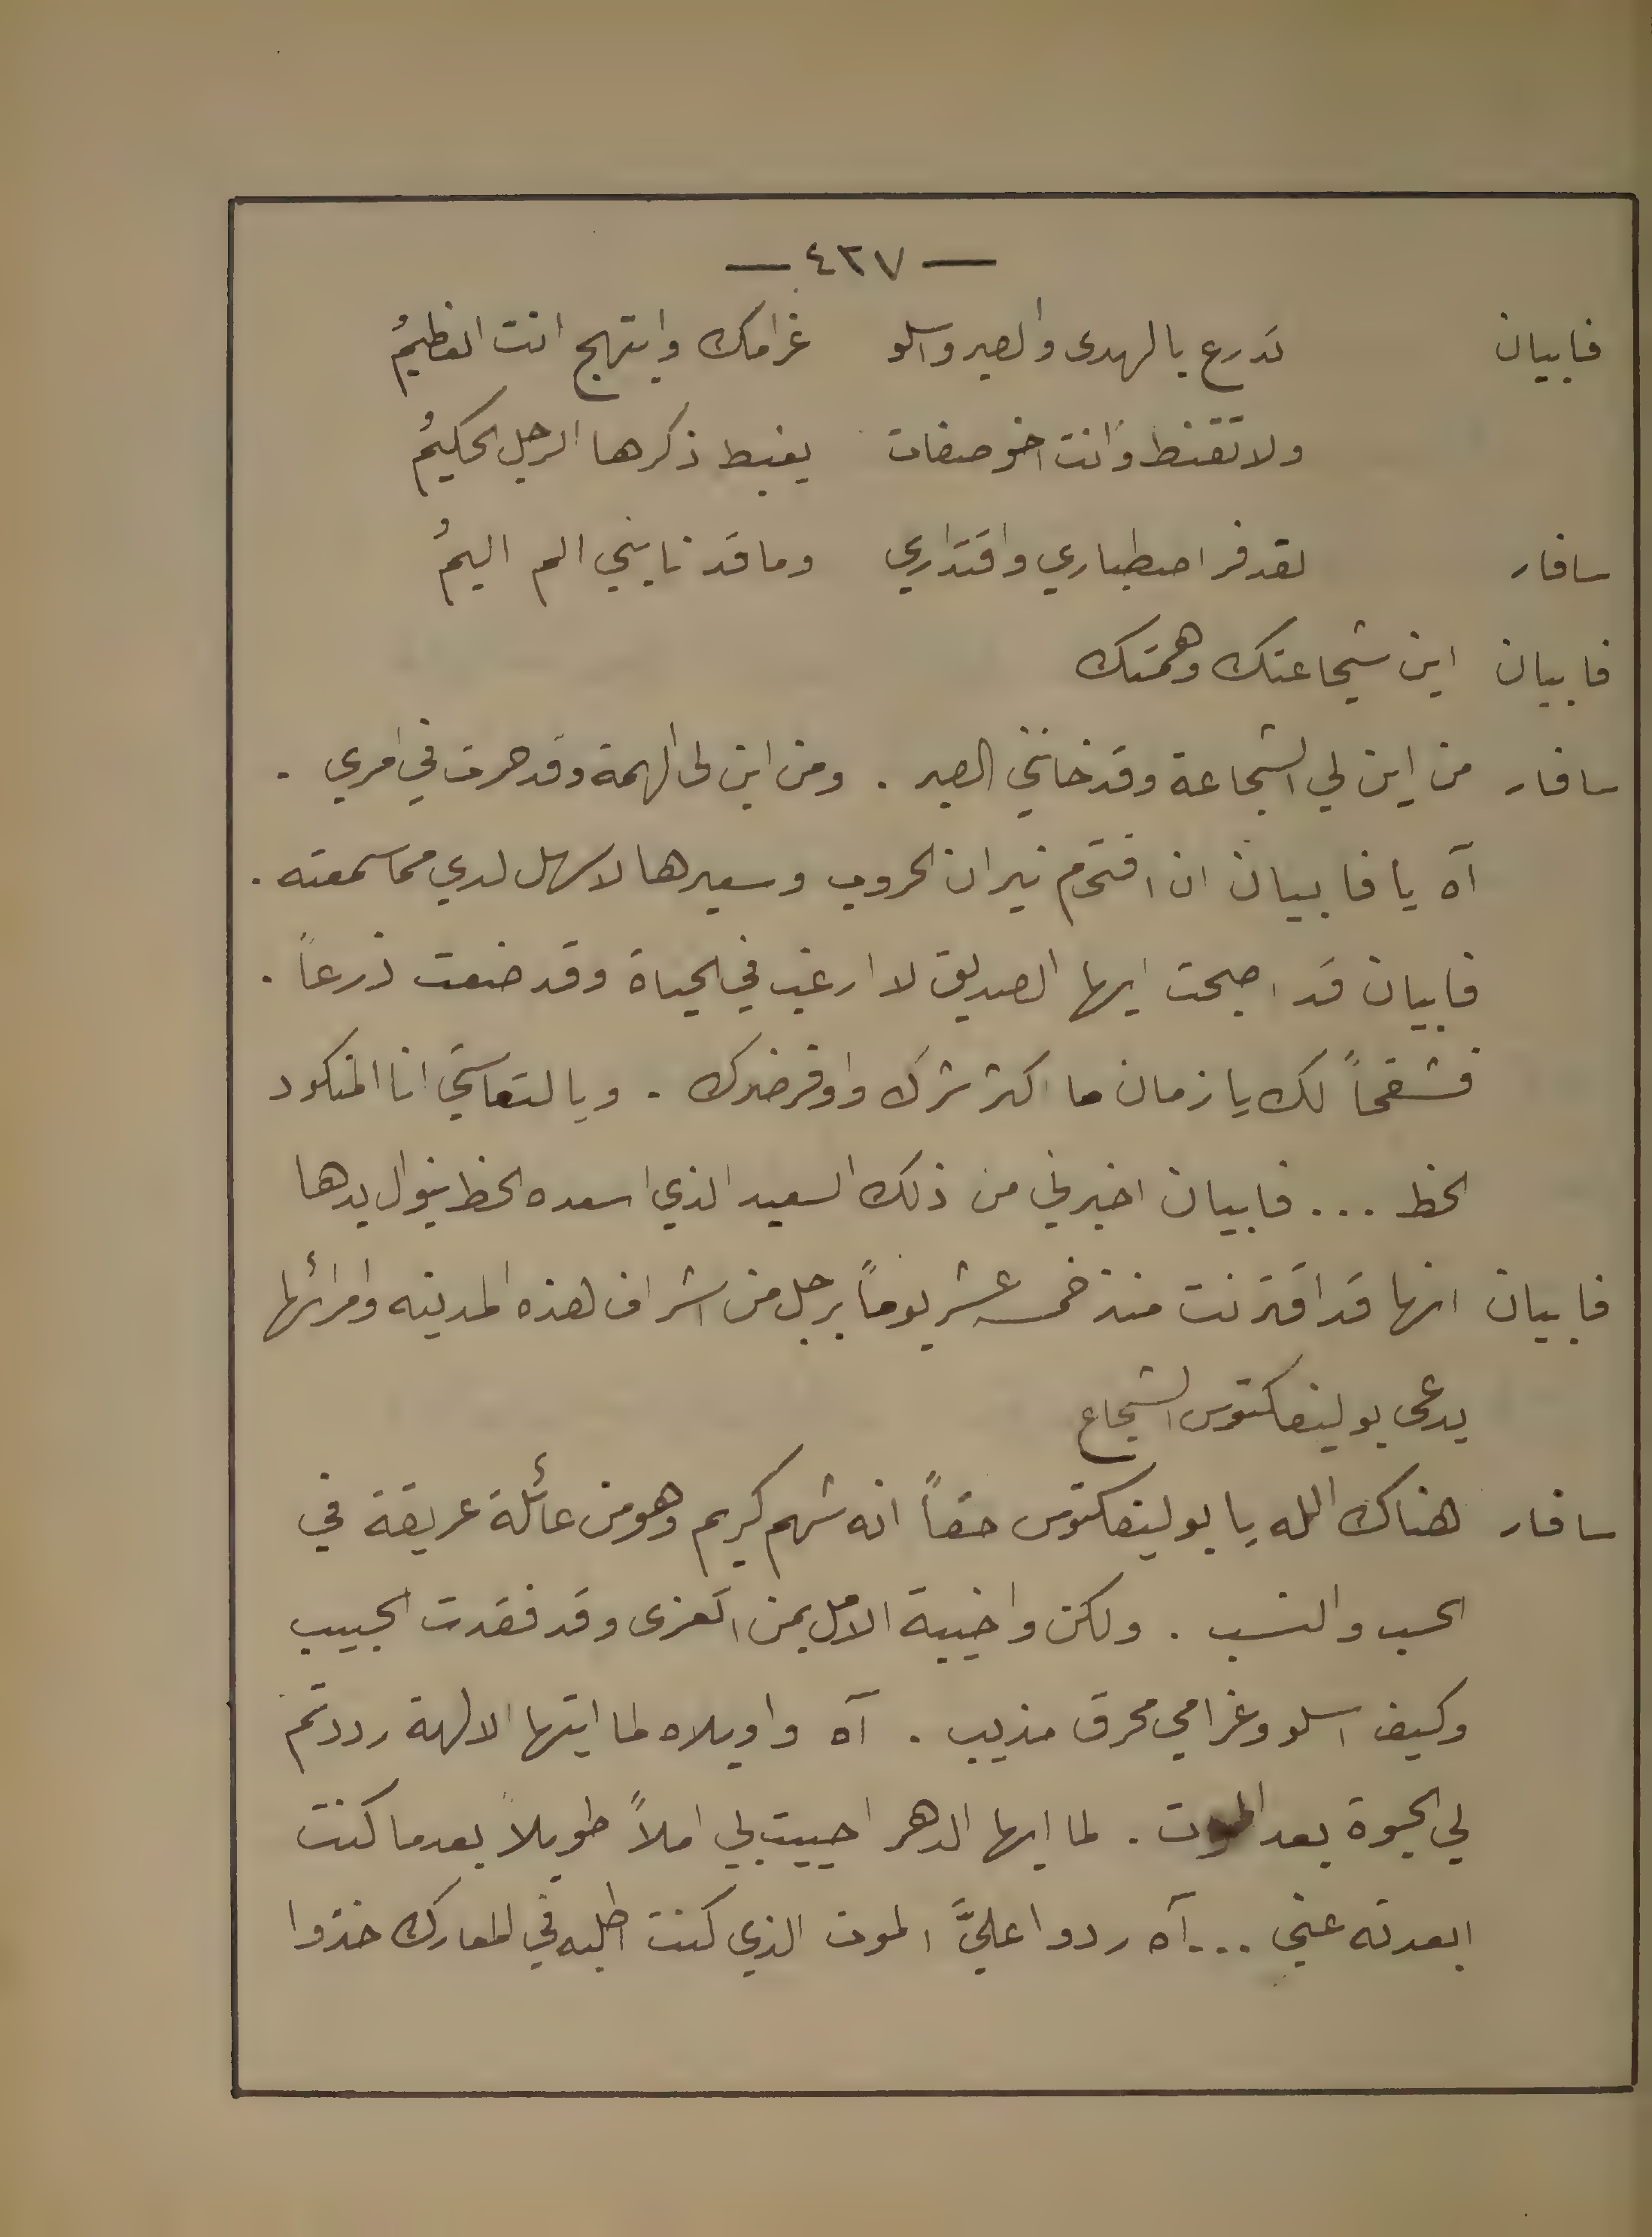 — ٤٢٧ —
فابيان تدرع بالهدى والصبر واسلو غرامك وابتهج انت العظيمُ
ولا تقنط وانت اخو صفات يغبط ذكرها الرجل الحكيمُ
سافار لقد فر اصطباري واقتداري وما قد نابني الم اليمُ
فابيان اين شجاعتك وهمتك
سافار من اين لي الشجاعة وقد خانني الصبر . ومن اين لى الهمة وقد حرت في امري .
آه يا فابيان ان اقتحم نيران الحروب وسعيرها لاسهل لدي مما سمعته .
فابيان قد اصبحت ايها الصديق لا ارغب في الحياة وقد ضقت ذرعاً .
فشقحاً لك يا زمان ما اكثر شرك واوفر ضرك . ويا لتعاستي انا المنكود
الحظ ... فابيان اخبرني من ذلك السعيد الذي اسعده الحظ بنوال يدها
فابيان انها قد اقترنت منذ خمسة عشر يوماً برجل من اشراف هذه المدينه وامرائها
يدعى بولينفكتوس الشجاع
سافار هناك الله يا بولينفكتوس حقاً انه شهم كريم وهو من عائلة عريقة في
الحسب والنسب . ولكن واخيبة الامل بمن اتعزى وقد فقدت الحبيب
وكيف اسلو وغرامي محرق مذيب . آه واويلاه لما ايتها الالهة رددتم
لي الحيوة بعد الموت . لما ايها الدهر احييت لي املاً طويلاً بعدما كنت
ابعدته عني ... آه ردوا عليَّ الموت الذي كنت اطلبه في المعارك خذوا